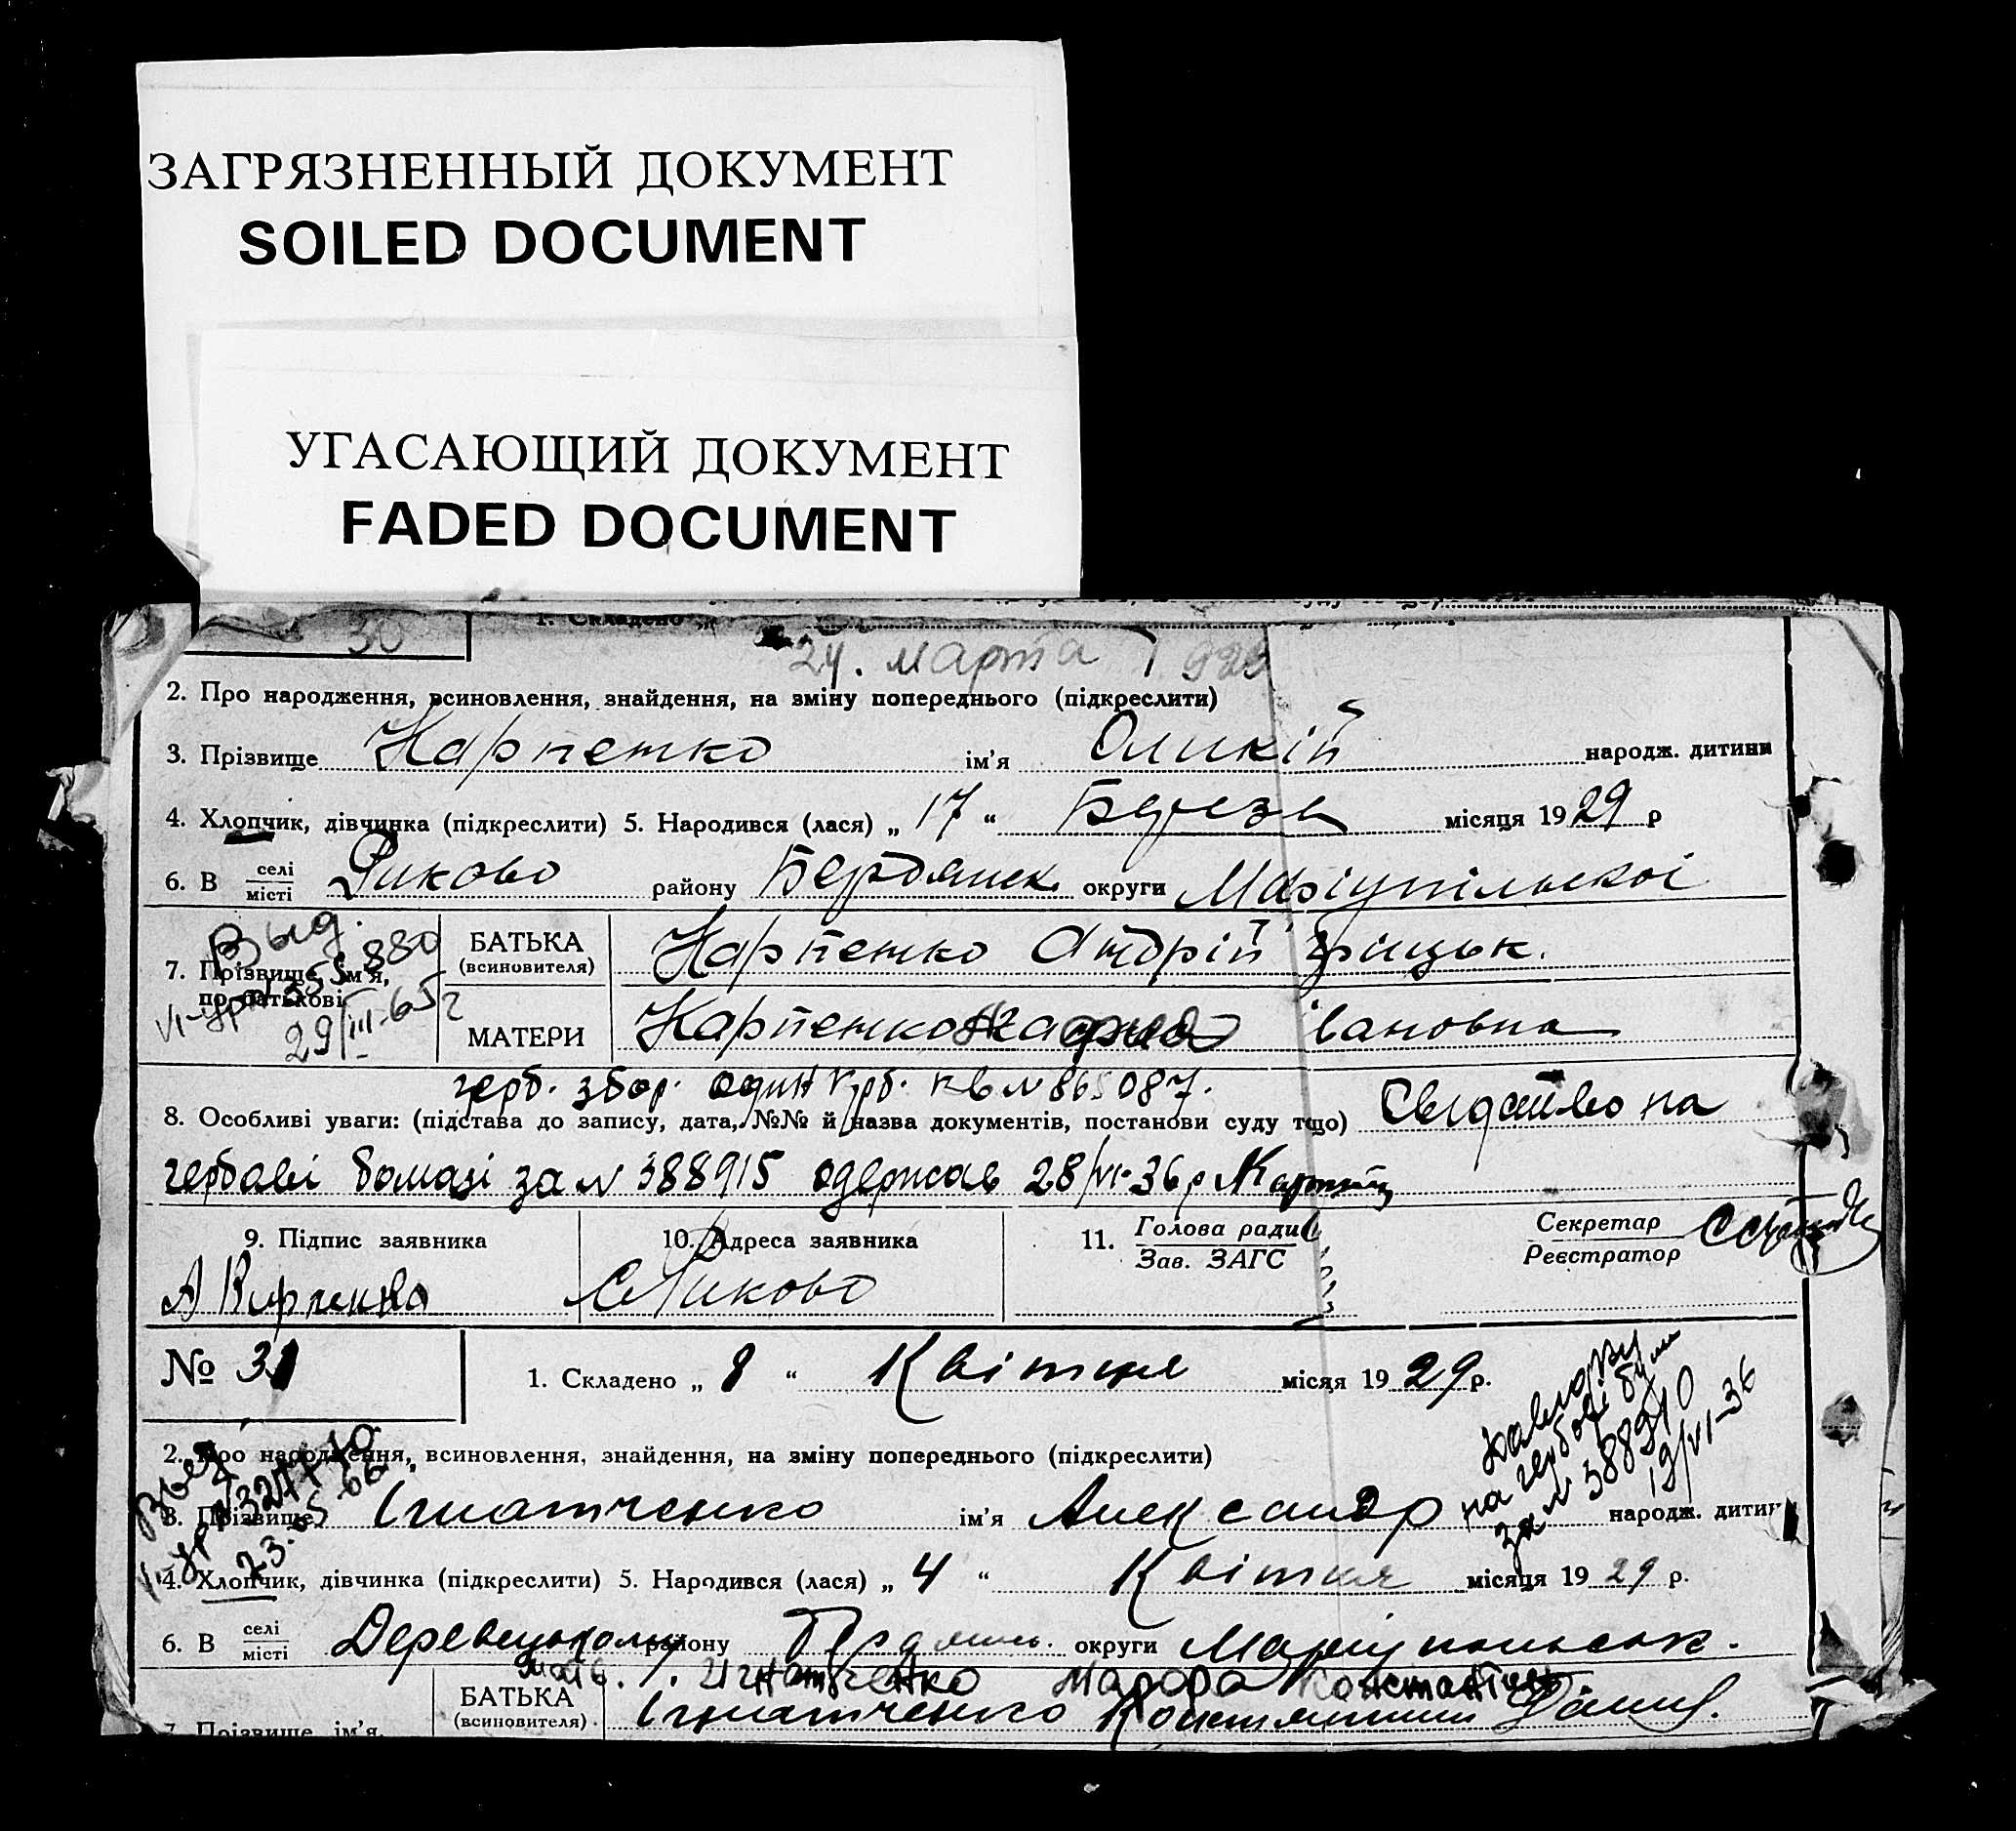 ЗАГРЯЗНЕННЫЙ ДОКУМЕНТ
SOILED DOCUMENT
УГАСАЮЩИЙ ДОКУМЕНТ
FADED DOCUMENT
30
1. Складено „
24. марта 1929
2. Про народження, всиновлення, знайдення, на зміну попереднього (підкреслити)
3. Прізвище Карпенко ім'я народж. дитини
4. Хлопчик, дівчинка (підкреслити) 5. Народився (лася) „ 17 “ Березн місяця 1929 р
6. В селі місті Риково району Бердянск округи Маріупільскої
Выд.
7. Прізвище, ім'я, по батькові
880
29/III-65г
БАТЬКА (всиновителя) Карпенко Андрій Гріцьк.
МАТЕРИ Карпенко Івановна
герб. збор. один крб. кв № 865087.
8. Особливі уваги: (підстава до запису, дата, №№ й назва документів, постанови суду тщо) Свидоство на
гербові бомазі за № 388915 одержав 28/VI-36р
9. Підпис заявника 10. Адреса заявника 11. Голова ради Зав. ЗАГС Секретар Реєстратор
с Риково
№ 31 1. Складено „ 8 “ Квітня місяця 1929 р.
2. Про народження, всиновлення, знайдення, на зміну попереднього (підкреслити)
на гербові
за № 388910
19/VI-36
3. Прізвище Ігнатченко ім'я Александр народж. дитини
23.05-66
4. Хлопчик, дівчинка (підкреслити) 5. Народився (лася) „ 4 “ Квітня місяця 1929 р.
6. В селі місті району Бердянсь. округи Маріупольськ.
мать. Игнатченко
7. Прізвище, ім'я, БАТЬКА (всиновителя) Ігнатченко Константин